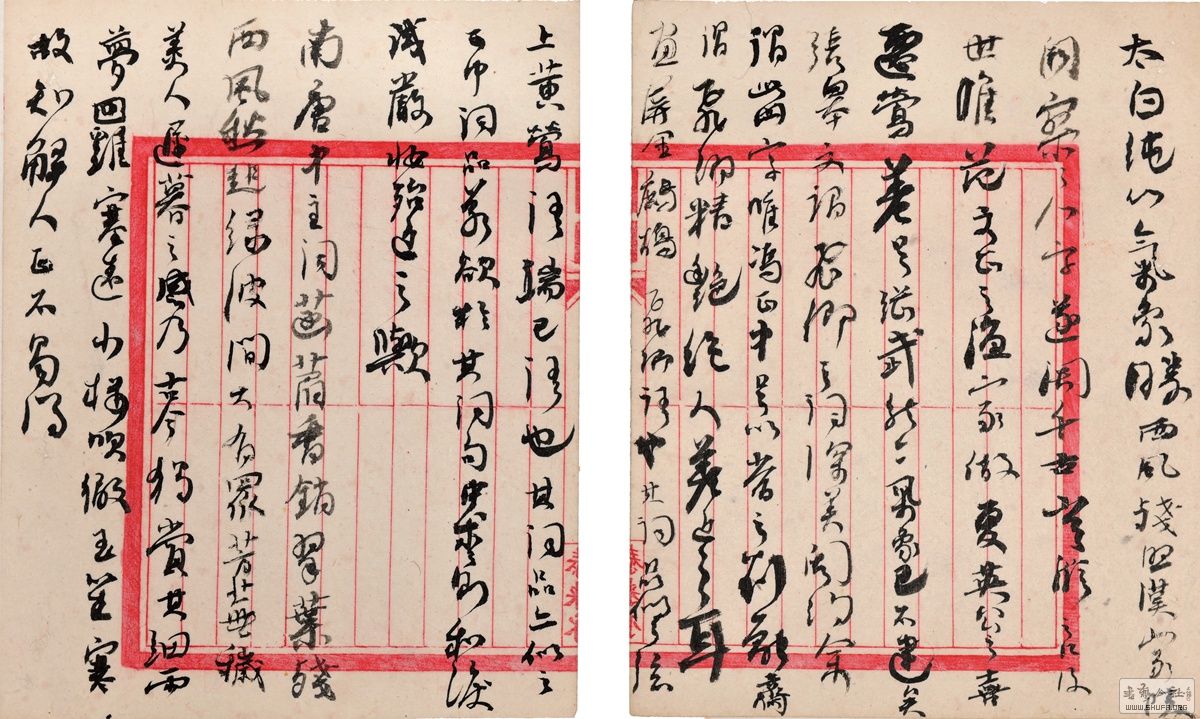 太白純以氣象勝西風殘照漢家陵
闕寥寥八字遂關千古登臨之口後
世惟范文正之漁家傲夏英公之喜
遷鶯差足繼武然氣象已不逮矣
張皋文謂飛卿之詞深美閎約余
謂此四字唯馮正中足以當之劉融齋
謂飛卿精艷絕人差近之耳
畫屏金鷓鴣飛卿語也其詞品似之弦
上黃鶯語端己語也其詞品亦似之
正中詞品若欲於其詞句中求之則和淚
試嚴妝殆近之歟
南唐中主詞菡萏香銷翠葉殘
西風愁起綠波間大有眾芳蕪穢
美人遲暮之感乃古今獨賞其細雨
夢回雞塞遠小樓吹徹玉笙寒
故知解人正不易得
WWW.SHUFA.ORG